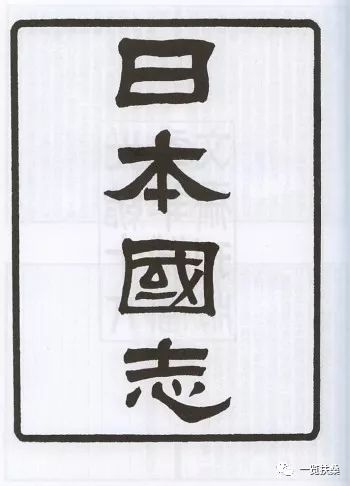 日本國志
一览扶桑